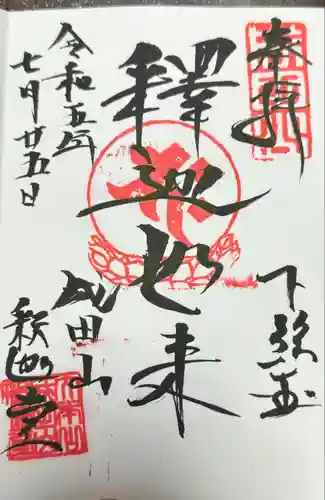 奉拝
下総国
釋迦如来
令和五年
七月廿五日
成田山
釈迦堂